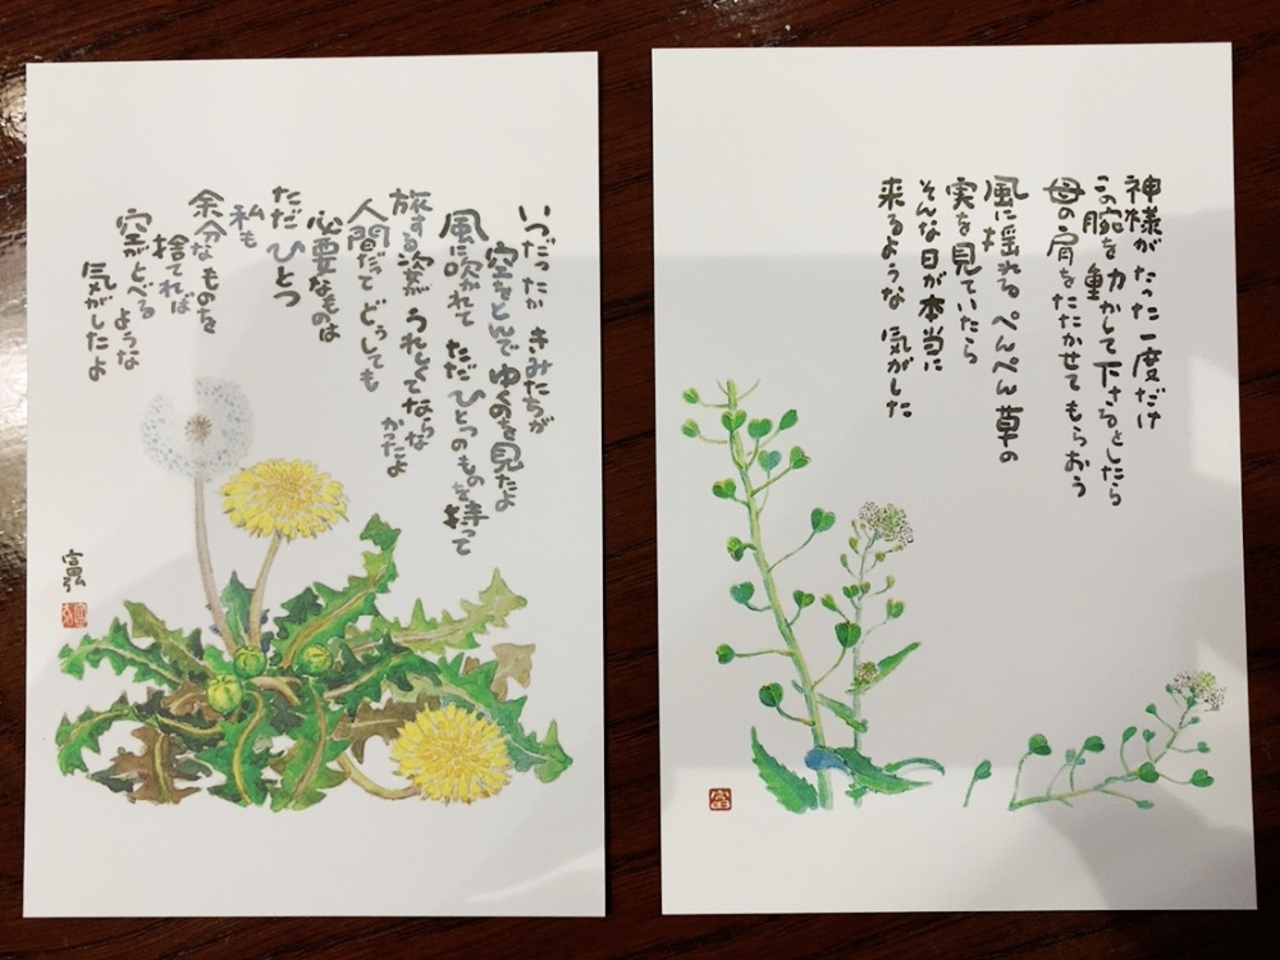 いつだったか きみたちが
空をとんでゆくのを見たよ
風に吹かれて ただひとつのものを持って
旅する姿が うれしくてならな
かったよ
人間だって どうしても
必要なものは
ただ ひとつ
私も
余分なものを
捨てれば
空がとべる ような
気がしたよ
富弘
神様が たった一度だけ
この腕を 動かして下さるとしたら
母の肩を たたかせてもらおう
風に揺れる ぺんぺん草の
実を見ていたら
そんな日が本当に
来るような 気がした
富